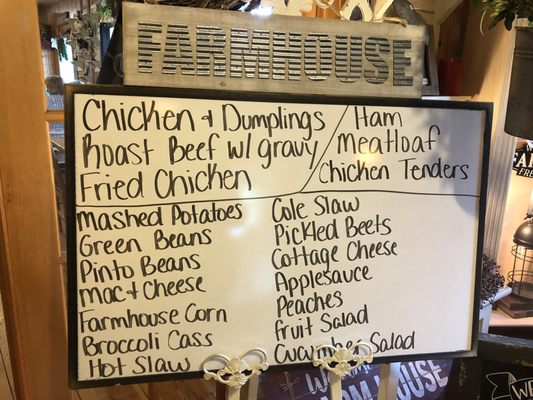 FARMHOUSE
Chicken & Dumplings
Roast Beef w/ gravy
Fried Chicken
Ham
Meatloaf
Chicken Tenders
Mashed Potatoes
Green Beans
Pinto Beans
Mac & Cheese
Farmhouse Corn
Broccoli Cass
Hot Slaw
Cole Slaw
Pickled Beets
Cottage Cheese
Applesauce
Peaches
Fruit Salad
Cucumber Salad
FARMHOUSE